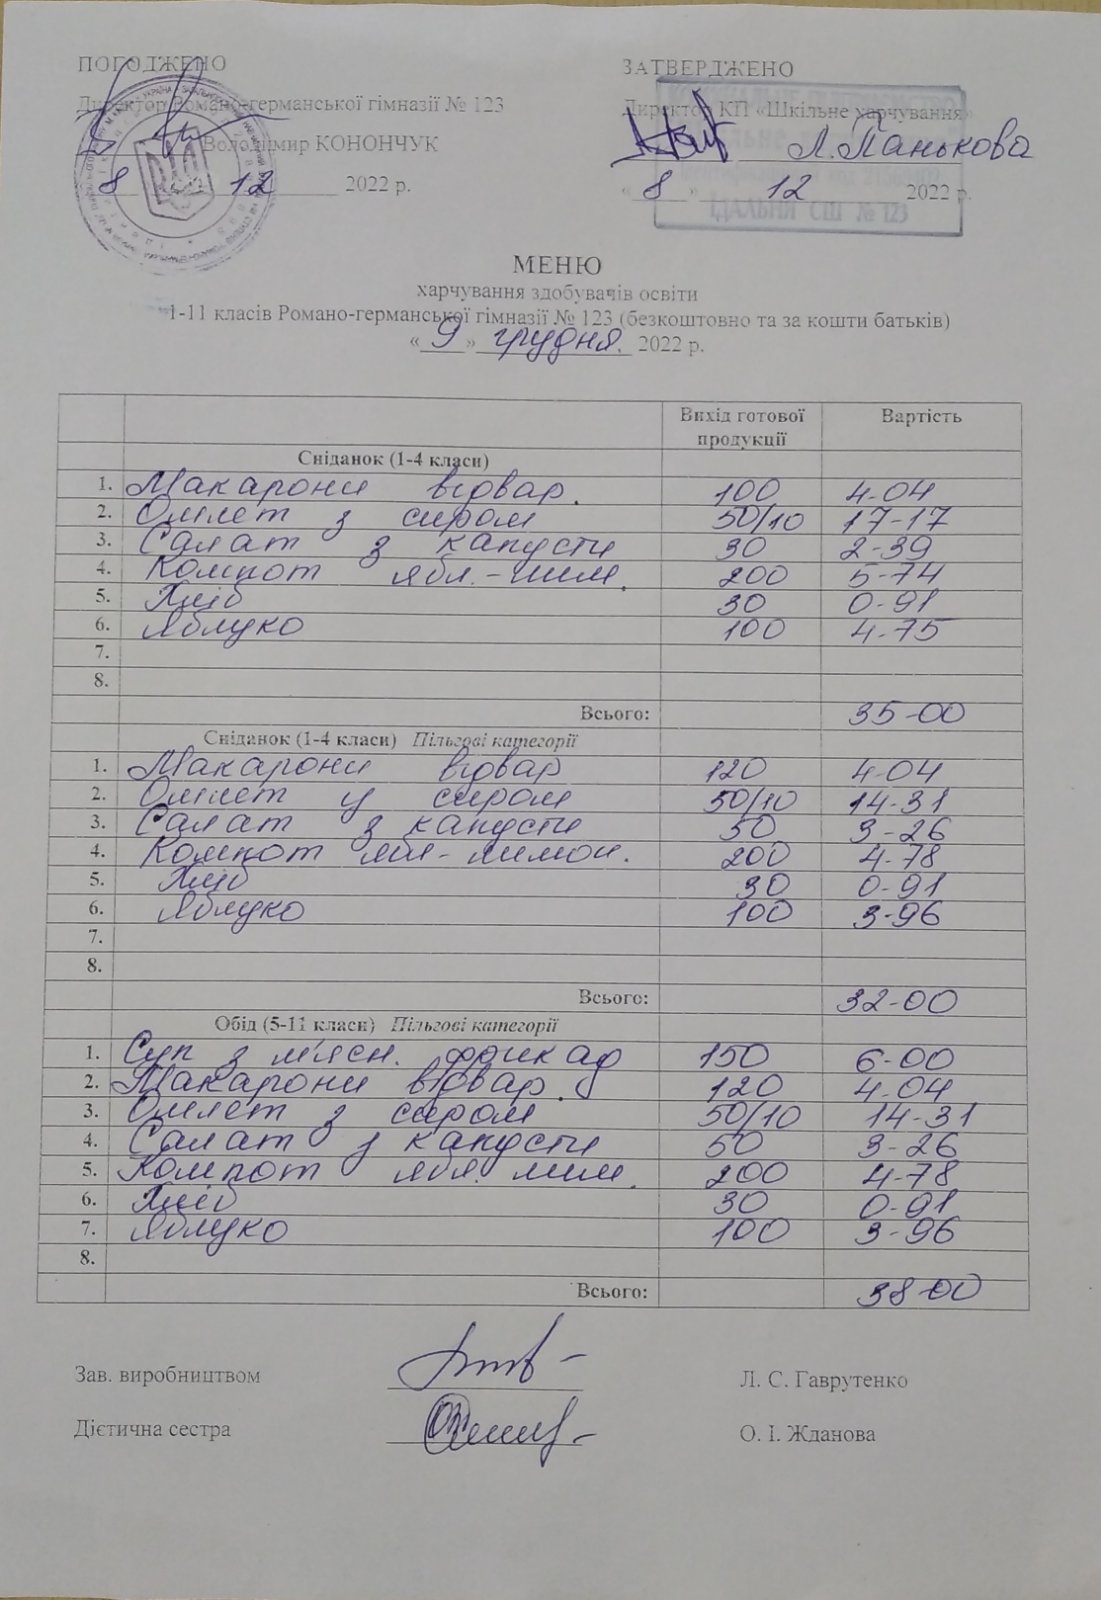 ПОГОДЖЕНО
Директор Романо-германської гімназії № 123
Володимир КОНОНЧУК
8 12 2022 р.
ЗАТВЕРДЖЕНО
Директор КП «Шкільне харчування»
Л. Панькова
« 8 » 12 2022 р.
ЇДАЛЬНЯ СШ № 123
МЕНЮ
харчування здобувачів освіти
1-11 класів Романо-германської гімназії № 123 (безкоштовно та за кошти батьків)
« 9 » грудня. 2022 р.
Вихід готової продукції Вартість
Сніданок (1-4 класи)
1. Макарони відвар. 100 4-04
2. Омлет з сиром 50/10 17-17
3. Салат з капусти 30 2-39
4. Компот ябл.-лим. 200 5-74
5. Хліб 30 0-91
6. Яблуко 100 4-75
7.
8.
Всього: 35-00
Сніданок (1-4 класи) Пільгові категорії
1. Макарони відвар 120 4-04
2. Омлет з сиром 50/10 14-31
3. Салат з капусти 50 3-26
4. Компот ябл-лимон. 200 4-78
5. Хліб 30 0-91
6. Яблуко 100 3-96
7.
8.
Всього: 32-00
Обід (5-11 класи) Пільгові категорії
1. Суп з м'ясн. фрикад 150 6-00
2. Макарони відвар. 120 4-04
3. Омлет з сиром 50/10 14-31
4. Салат з капусти 50 3-26
5. Компот ябл. лим. 200 4-78
6. Хліб 30 0-91
7. Яблуко 100 3-96
8.
Всього: 38-00
Зав. виробництвом Л. С. Гаврутенко
Дієтична сестра О. І. Жданова